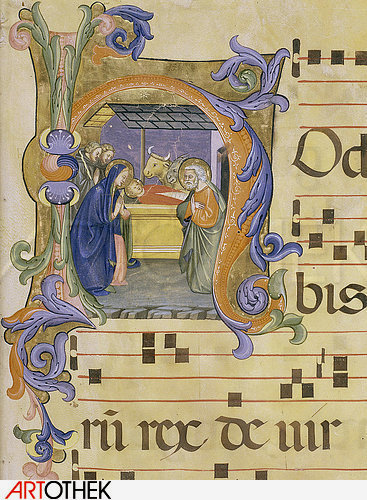 H Od
bis
rũ rex de uir
ARTOTHEK